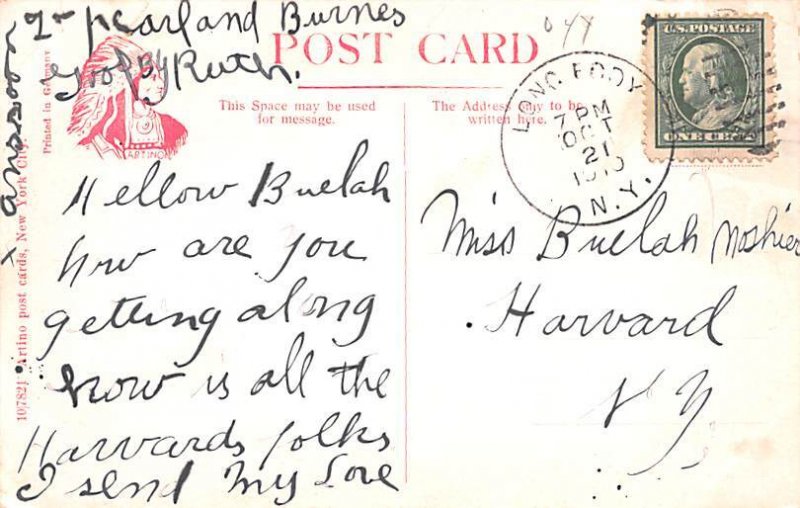 POST CARD
This Space may be used
for message.
The Address only to be
written here.
Hellow Buelah
how are you
getting along
how is all the
Harvards folks
I send my Love
to pearl and Burnes
Good By Ruth.
ans soon
Miss Buelah Moshier
Harvard
N Y.
LONG EDDY
7 PM
OCT
21
1910
N.Y.
U.S. POSTAGE
ONE CENT
ARTINO
Printed in Germany
10782J Artino post cards, New York City.